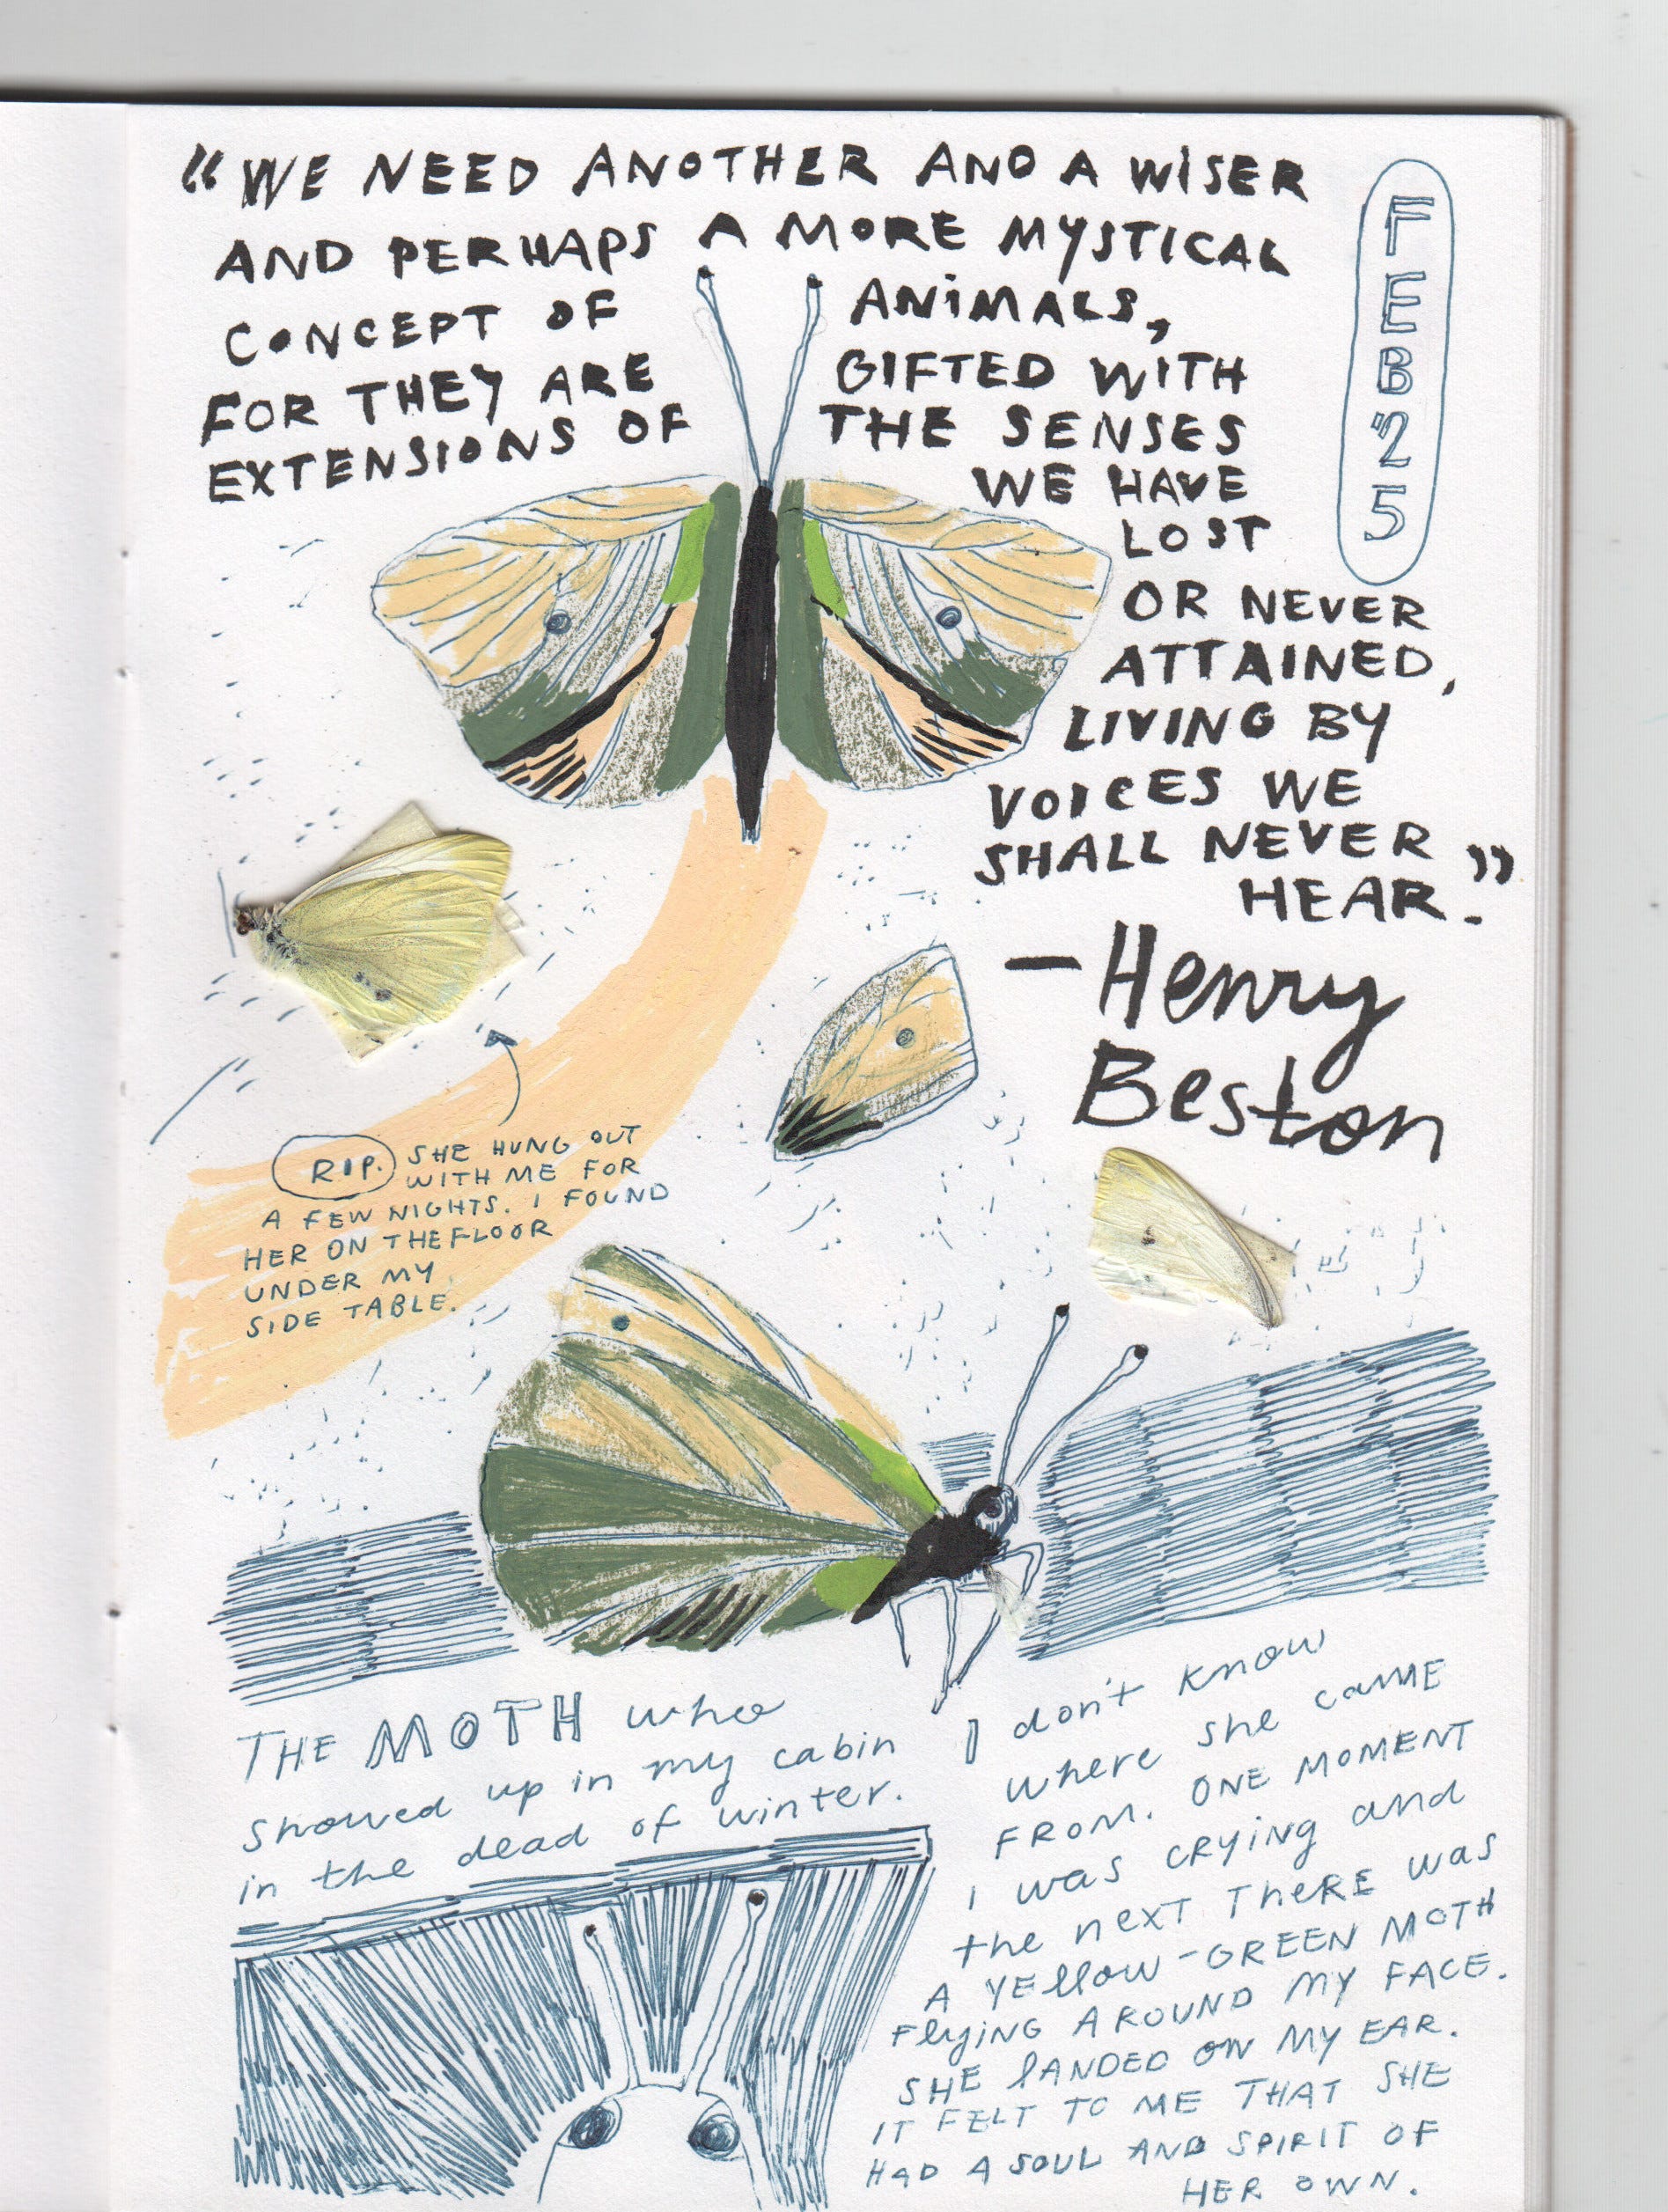 “WE NEED ANOTHER AND A WISER
AND PERHAPS A MORE MYSTICAL
CONCEPT OF ANIMALS,
FOR THEY ARE GIFTED WITH
EXTENSIONS OF THE SENSES
WE HAVE
LOST
OR NEVER
ATTAINED,
LIVING BY
VOICES WE
SHALL NEVER
HEAR.”
— Henry
Beston
FEB '25
R.I.P. SHE HUNG OUT
WITH ME FOR
A FEW NIGHTS. I FOUND
HER ON THE FLOOR
UNDER MY
SIDE TABLE.
THE MOTH who
showed up in my cabin
in the dead of winter.
I don't know
where she came
FROM. ONE MOMENT
i was CRYING and
the next There was
A Yellow-GREEN MOTH
FlyiNG AROUND MY FACE.
SHE lANDED ON MY EAR.
IT FELT TO ME THAT SHE
HAD A SOUL AND SPIRIT OF
HER OWN.